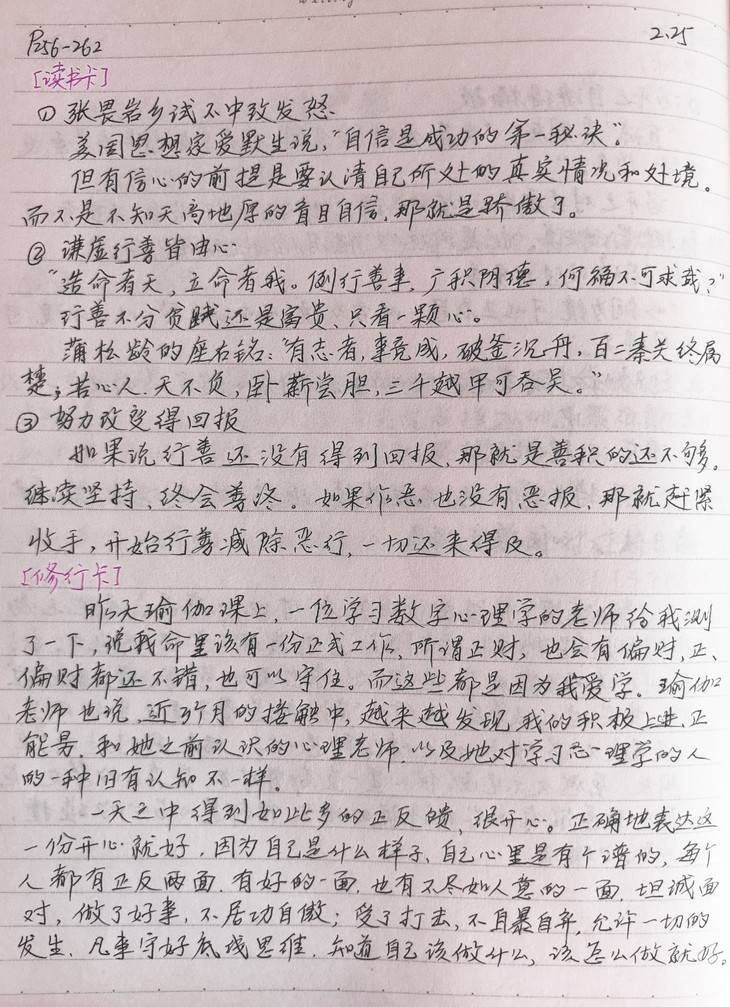 P256-262
2.25
[读书卡]
(1) 张畏岩乡试不中致发怒
美国思想家爱默生说，"自信是成功的第一秘诀"。
但有信心的前提是要认清自己所处的真实情况和处境。
而不是不知天高地厚的盲目自信，那就是骄傲了。
② 谦虚行善皆由心
"造命者天，立命者我。倒行善事，广积阴德，何福不可求哉？"
行善不分贫贱还是富贵、只看一颗心。
蒲松龄的座右铭："有志者，事竟成，破釜沉舟，百二秦关终属
楚；苦心人.天不负，卧薪尝胆，三千越甲可吞吴。"
③ 努力改变得回报
如果说行善还没有得到回报，那就是善积的还不够。
继续坚持，终会善终。如果作恶也没有恶报，那就赶紧
收手，开始行善减除恶行，一切还来得及。
[修行卡]
昨天瑜伽课上，一位学习数字心理学的老师给我测
了一下，说我命里该有一份正式工作，所谓正财，也会有偏财，正、
偏财都还不错，也可以守住。而这些都是因为我爱学。瑜伽
老师也说，近3个月的接触中，越来越发现我的积极上进.正
能量.和她之前认识的心理老师.以及她对学习心理学的人
的一种旧有认知不一样。
一天之中得到如此多的正反馈，很开心。正确地表达这
一份开心就好，因为自己是什么样子，自己心里是有个谱的，每个
人都有正反两面.有好的一面，也有不尽如人意的一面.坦诚面
对，做了好事，不居功自傲；受了打击，不自暴自弃.允许一切的
发生.凡事守好底线思维.知道自己该做什么，该怎么做就好。